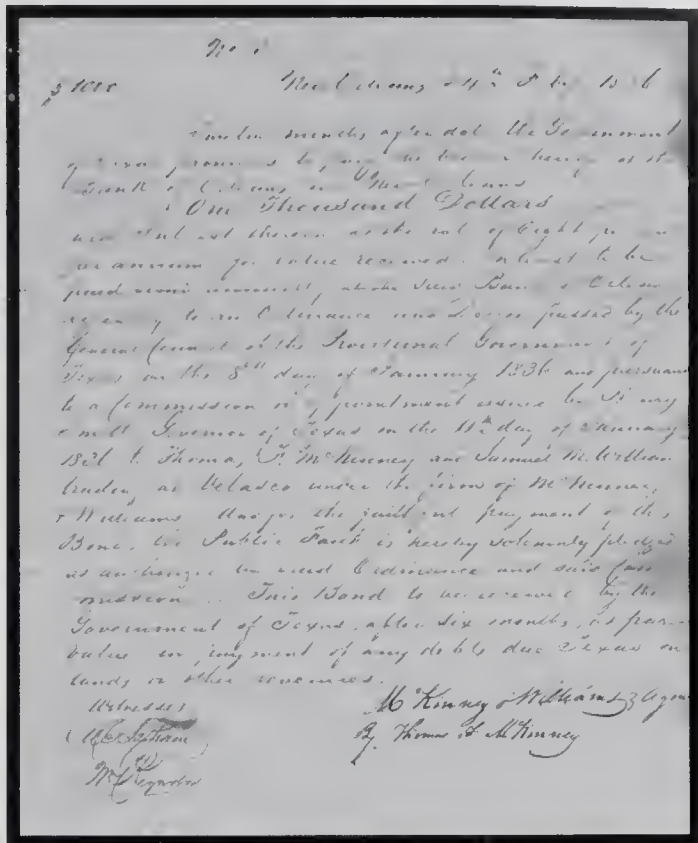 No.
$1000
New Orleans 4th 1836
Twelve months after date the Government
of Texas promises to pay to the at the
Bank of Orleans in New Orleans
One Thousand Dollars
and Interest thereon at the rate of Eight per
annum for value received. Interest to be
paid semi annually at the said Bank of Orleans
to an Ordinance and passed by the
General Council of the Provisional Government of
Texas on the 8th day of January 1836 and pursuant
to a Commission of appointment issued by
Governor of Texas on the 11th day of January
1836 to Thomas F. McKinney and Samuel M. William
trading at Velasco under the firm of McKinney
& Williams the payment of this
Bond, the Public Faith is hereby solemnly pledged
as by said Ordinance and said Com
mission. This Bond to be received by the
Government of Texas, after six months, as par
value in payment of any debts due Texas on
lands or other revenues.
Witnesses
McKinney & Williams Agen
By Thomas F. McKinney